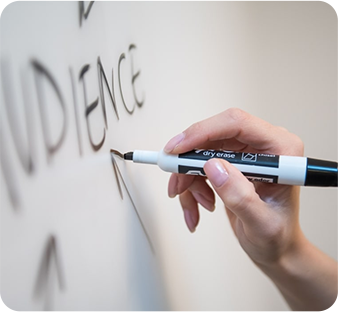 UDIENCE
dry erase